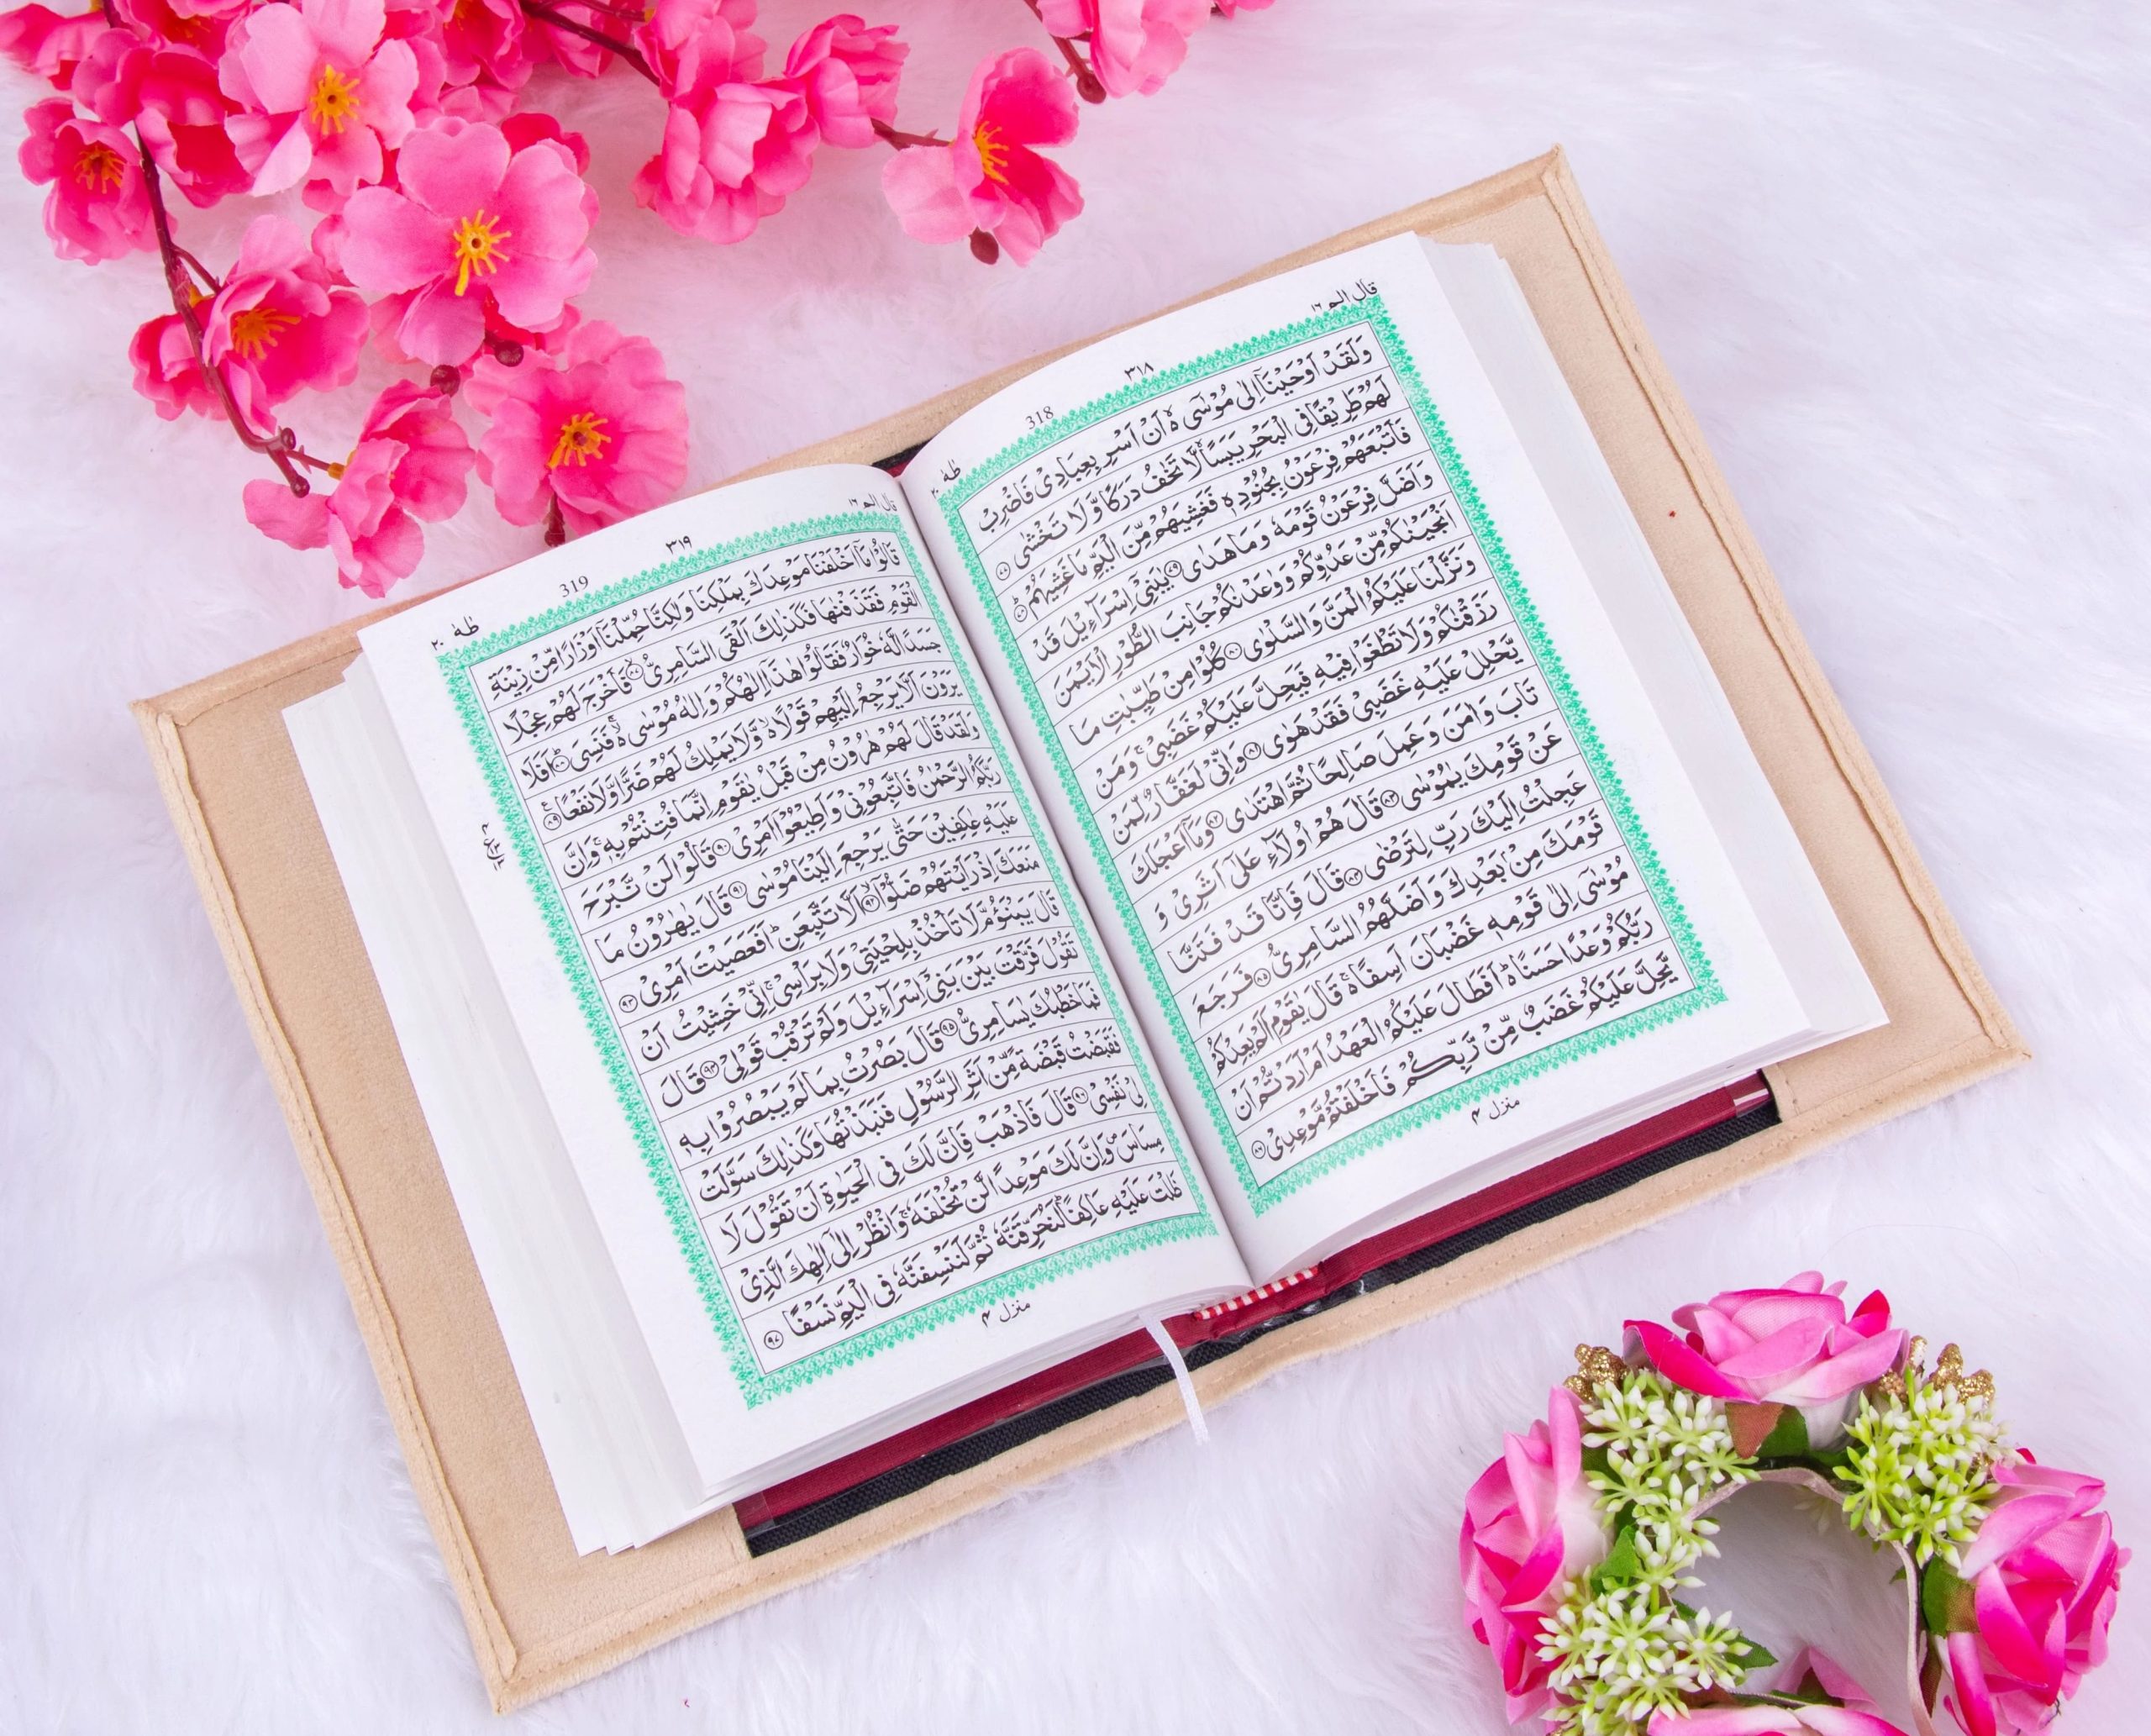 قال الم ١٦
٣١٨
318
طٰهٰ ٢٠
وَلَقَدْ اَوْحَيْنَاۤ اِلٰى مُوْسٰۤى ۙ۬ اَنْ اَسْرِ بِعِبَادِىْ فَاضْرِبْ
لَهُمْ طَرِيْقًا فِى الْبَحْرِ يَبَسًا ۙ لَّا تَخٰفُ دَرَكًا وَّلَا تَخْشٰى ﴿٧٧﴾
فَاَتْبَعَهُمْ فِرْعَوْنُ بِجُنُوْدِهٖ فَغَشِيَهُمْ مِّنَ الْيَمِّ مَا غَشِيَهُمْ ؕ﴿٧٨﴾
وَاَضَلَّ فِرْعَوْنُ قَوْمَهٗ وَمَا هَدٰى ﴿٧٩﴾ يٰبَنِىْۤ اِسْرَآءِيْلَ قَدْ
اَنْجَيْنٰكُمْ مِّنْ عَدُوِّكُمْ وَوٰعَدْنٰكُمْ جَانِبَ الطُّوْرِ الْاَيْمَنَ
وَنَزَّلْنَا عَلَيْكُمُ الْمَنَّ وَالسَّلْوٰى ﴿٨٠﴾ كُلُوْا مِنْ طَيِّبٰتِ مَا
رَزَقْنٰكُمْ وَلَا تَطْغَوْا فِيْهِ فَيَحِلَّ عَلَيْكُمْ غَضَبِىْ ۚ وَمَنْ
يَّحْلِلْ عَلَيْهِ غَضَبِىْ فَقَدْ هَوٰى ﴿٨١﴾ وَاِنِّىْ لَغَفَّارٌ لِّمَنْ
تَابَ وَاٰمَنَ وَعَمِلَ صَالِحًا ثُمَّ اهْتَدٰى ﴿٨٢﴾ وَمَاۤ اَعْجَلَكَ
عَنْ قَوْمِكَ يٰمُوْسٰى ﴿٨٣﴾ قَالَ هُمْ اُولَآءِ عَلٰۤى اَثَرِىْ وَ
عَجِلْتُ اِلَيْكَ رَبِّ لِتَرْضٰى ﴿٨٤﴾ قَالَ فَاِنَّا قَدْ فَتَنَّا
قَوْمَكَ مِنْۢ بَعْدِكَ وَاَضَلَّهُمُ السَّامِرِىُّ ﴿٨٥﴾ فَرَجَعَ
مُوْسٰۤى اِلٰى قَوْمِهٖ غَضْبَانَ اَسِفًا ۚ۬ قَالَ يٰقَوْمِ اَلَمْ يَعِدْكُمْ
رَبُّكُمْ وَعْدًا حَسَنًا ؕ۬ اَفَطَالَ عَلَيْكُمُ الْعَهْدُ اَمْ اَرَدْتُّمْ اَنْ
يَّحِلَّ عَلَيْكُمْ غَضَبٌ مِّنْ رَّبِّكُمْ فَاَخْلَفْتُمْ مَّوْعِدِىْ ﴿٨٦﴾
منزل ٤
قال الم ١٦
٣١٩
319
طٰهٰ ٢٠
قَالُوْا مَاۤ اَخْلَفْنَا مَوْعِدَكَ بِمَلْكِنَا وَلٰكِنَّا حُمِّلْنَاۤ اَوْزَارًا مِّنْ زِيْنَةِ
الْقَوْمِ فَقَذَفْنٰهَا فَكَذٰلِكَ اَلْقَى السَّامِرِىُّ ۙ﴿٨٧﴾ فَاَخْرَجَ لَهُمْ عِجْلًا
جَسَدًا لَّهٗ خُوَارٌ فَقَالُوْا هٰذَاۤ اِلٰهُكُمْ وَاِلٰهُ مُوْسٰى ۬ فَنَسِىَ ؕ﴿٨٨﴾ اَفَلَا
يَرَوْنَ اَلَّا يَرْجِعُ اِلَيْهِمْ قَوْلًا ۙ۬ وَّلَا يَمْلِكُ لَهُمْ ضَرًّا وَّلَا نَفْعًا ﴿٨٩﴾
وَلَقَدْ قَالَ لَهُمْ هٰرُوْنُ مِنْ قَبْلُ يٰقَوْمِ اِنَّمَا فُتِنْتُمْ بِهٖ ۚ وَاِنَّ
رَبَّكُمُ الرَّحْمٰنُ فَاتَّبِعُوْنِىْ وَاَطِيْعُوْۤا اَمْرِىْ ﴿٩٠﴾ قَالُوْا لَنْ نَّبْرَحَ
عَلَيْهِ عٰكِفِيْنَ حَتّٰى يَرْجِعَ اِلَيْنَا مُوْسٰى ﴿٩١﴾ قَالَ يٰهٰرُوْنُ مَا
مَنَعَكَ اِذْ رَاَيْتَهُمْ ضَلُّوْۤا ۙ﴿٩٢﴾ اَلَّا تَتَّبِعَنِ ؕ اَفَعَصَيْتَ اَمْرِىْ ﴿٩٣﴾
قَالَ يَبْنَؤُمَّ لَا تَاْخُذْ بِلِحْيَتِىْ وَلَا بِرَاْسِىْ ۚ اِنِّىْ خَشِيْتُ اَنْ
تَقُوْلَ فَرَّقْتَ بَيْنَ بَنِىْۤ اِسْرَآءِيْلَ وَلَمْ تَرْقُبْ قَوْلِىْ ﴿٩٤﴾ قَالَ
فَمَا خَطْبُكَ يٰسَامِرِىُّ ﴿٩٥﴾ قَالَ بَصُرْتُ بِمَا لَمْ يَبْصُرُوْا بِهٖ
فَقَبَضْتُ قَبْضَةً مِّنْ اَثَرِ الرَّسُوْلِ فَنَبَذْتُهَا وَكَذٰلِكَ سَوَّلَتْ
لِىْ نَفْسِىْ ﴿٩٦﴾ قَالَ فَاذْهَبْ فَاِنَّ لَكَ فِى الْحَيٰوةِ اَنْ تَقُوْلَ لَا
مِسَاسَ ۪ وَاِنَّ لَكَ مَوْعِدًا لَّنْ تُخْلَفَهٗ ۚ وَانْظُرْ اِلٰۤى اِلٰهِكَ الَّذِىْ
ظَلْتَ عَلَيْهِ عَاكِفًا ؕ لَنُحَرِّقَنَّهٗ ثُمَّ لَنَنْسِفَنَّهٗ فِى الْيَمِّ نَسْفًا ﴿٩٧﴾
منزل ٤